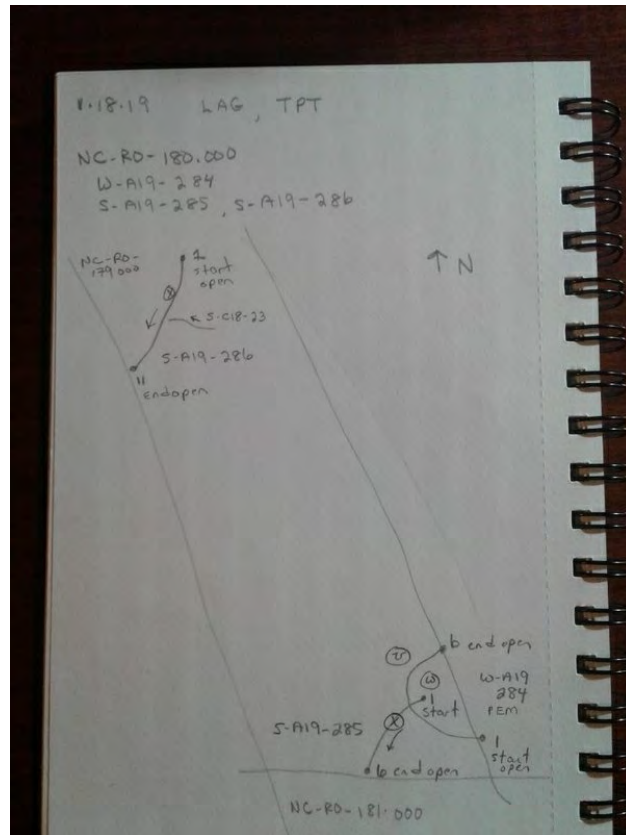 1.18.19 LAG, TPT
NC-RO-180.000
W-A19-284
S-A19-285, S-A19-286
NC-RO-
179.000
1
start
open
↑ N
X
S-C18-23
S-A19-286
11
end open
6 end open
U
W
W-A19
284
PEM
1
start
X
S-A19-285
1
start
open
6 end open
NC-RO-181.000